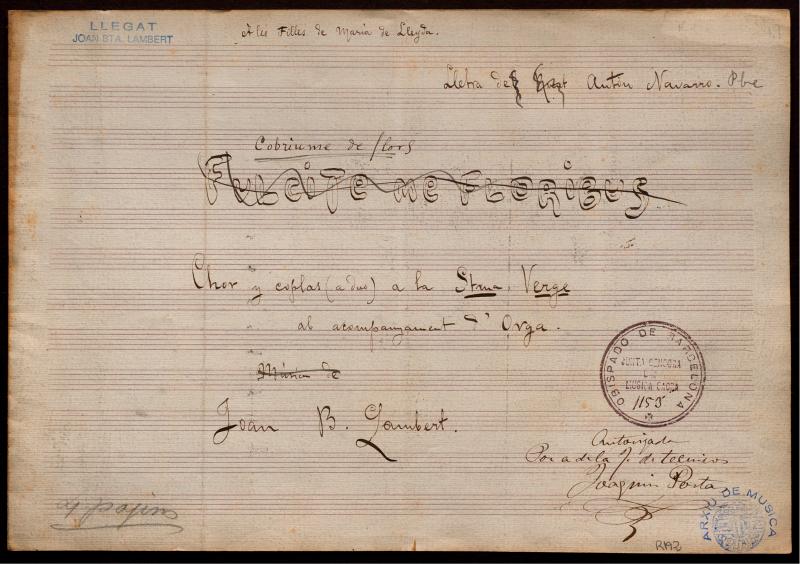 LLEGAT
JOAN BTA. LAMBERT
A les Filles de María de Lleyda.
Lletra de Anton Navarro. Pbe
Cobriume de flors
FULCITE ME FLORIBUS
Chor y coplas (a duo) a la Stma. Verge
al acompanyament d'Orga.
Música de
Joan B. Lambert.
OBISPADO DE BARCELONA
JUNTA CENSORA
DE
MUSICA SACRA
1158
Autorizada
Por a. de la J. de tecnicos
Joaquin Porta
ARXIU DE MUSICA